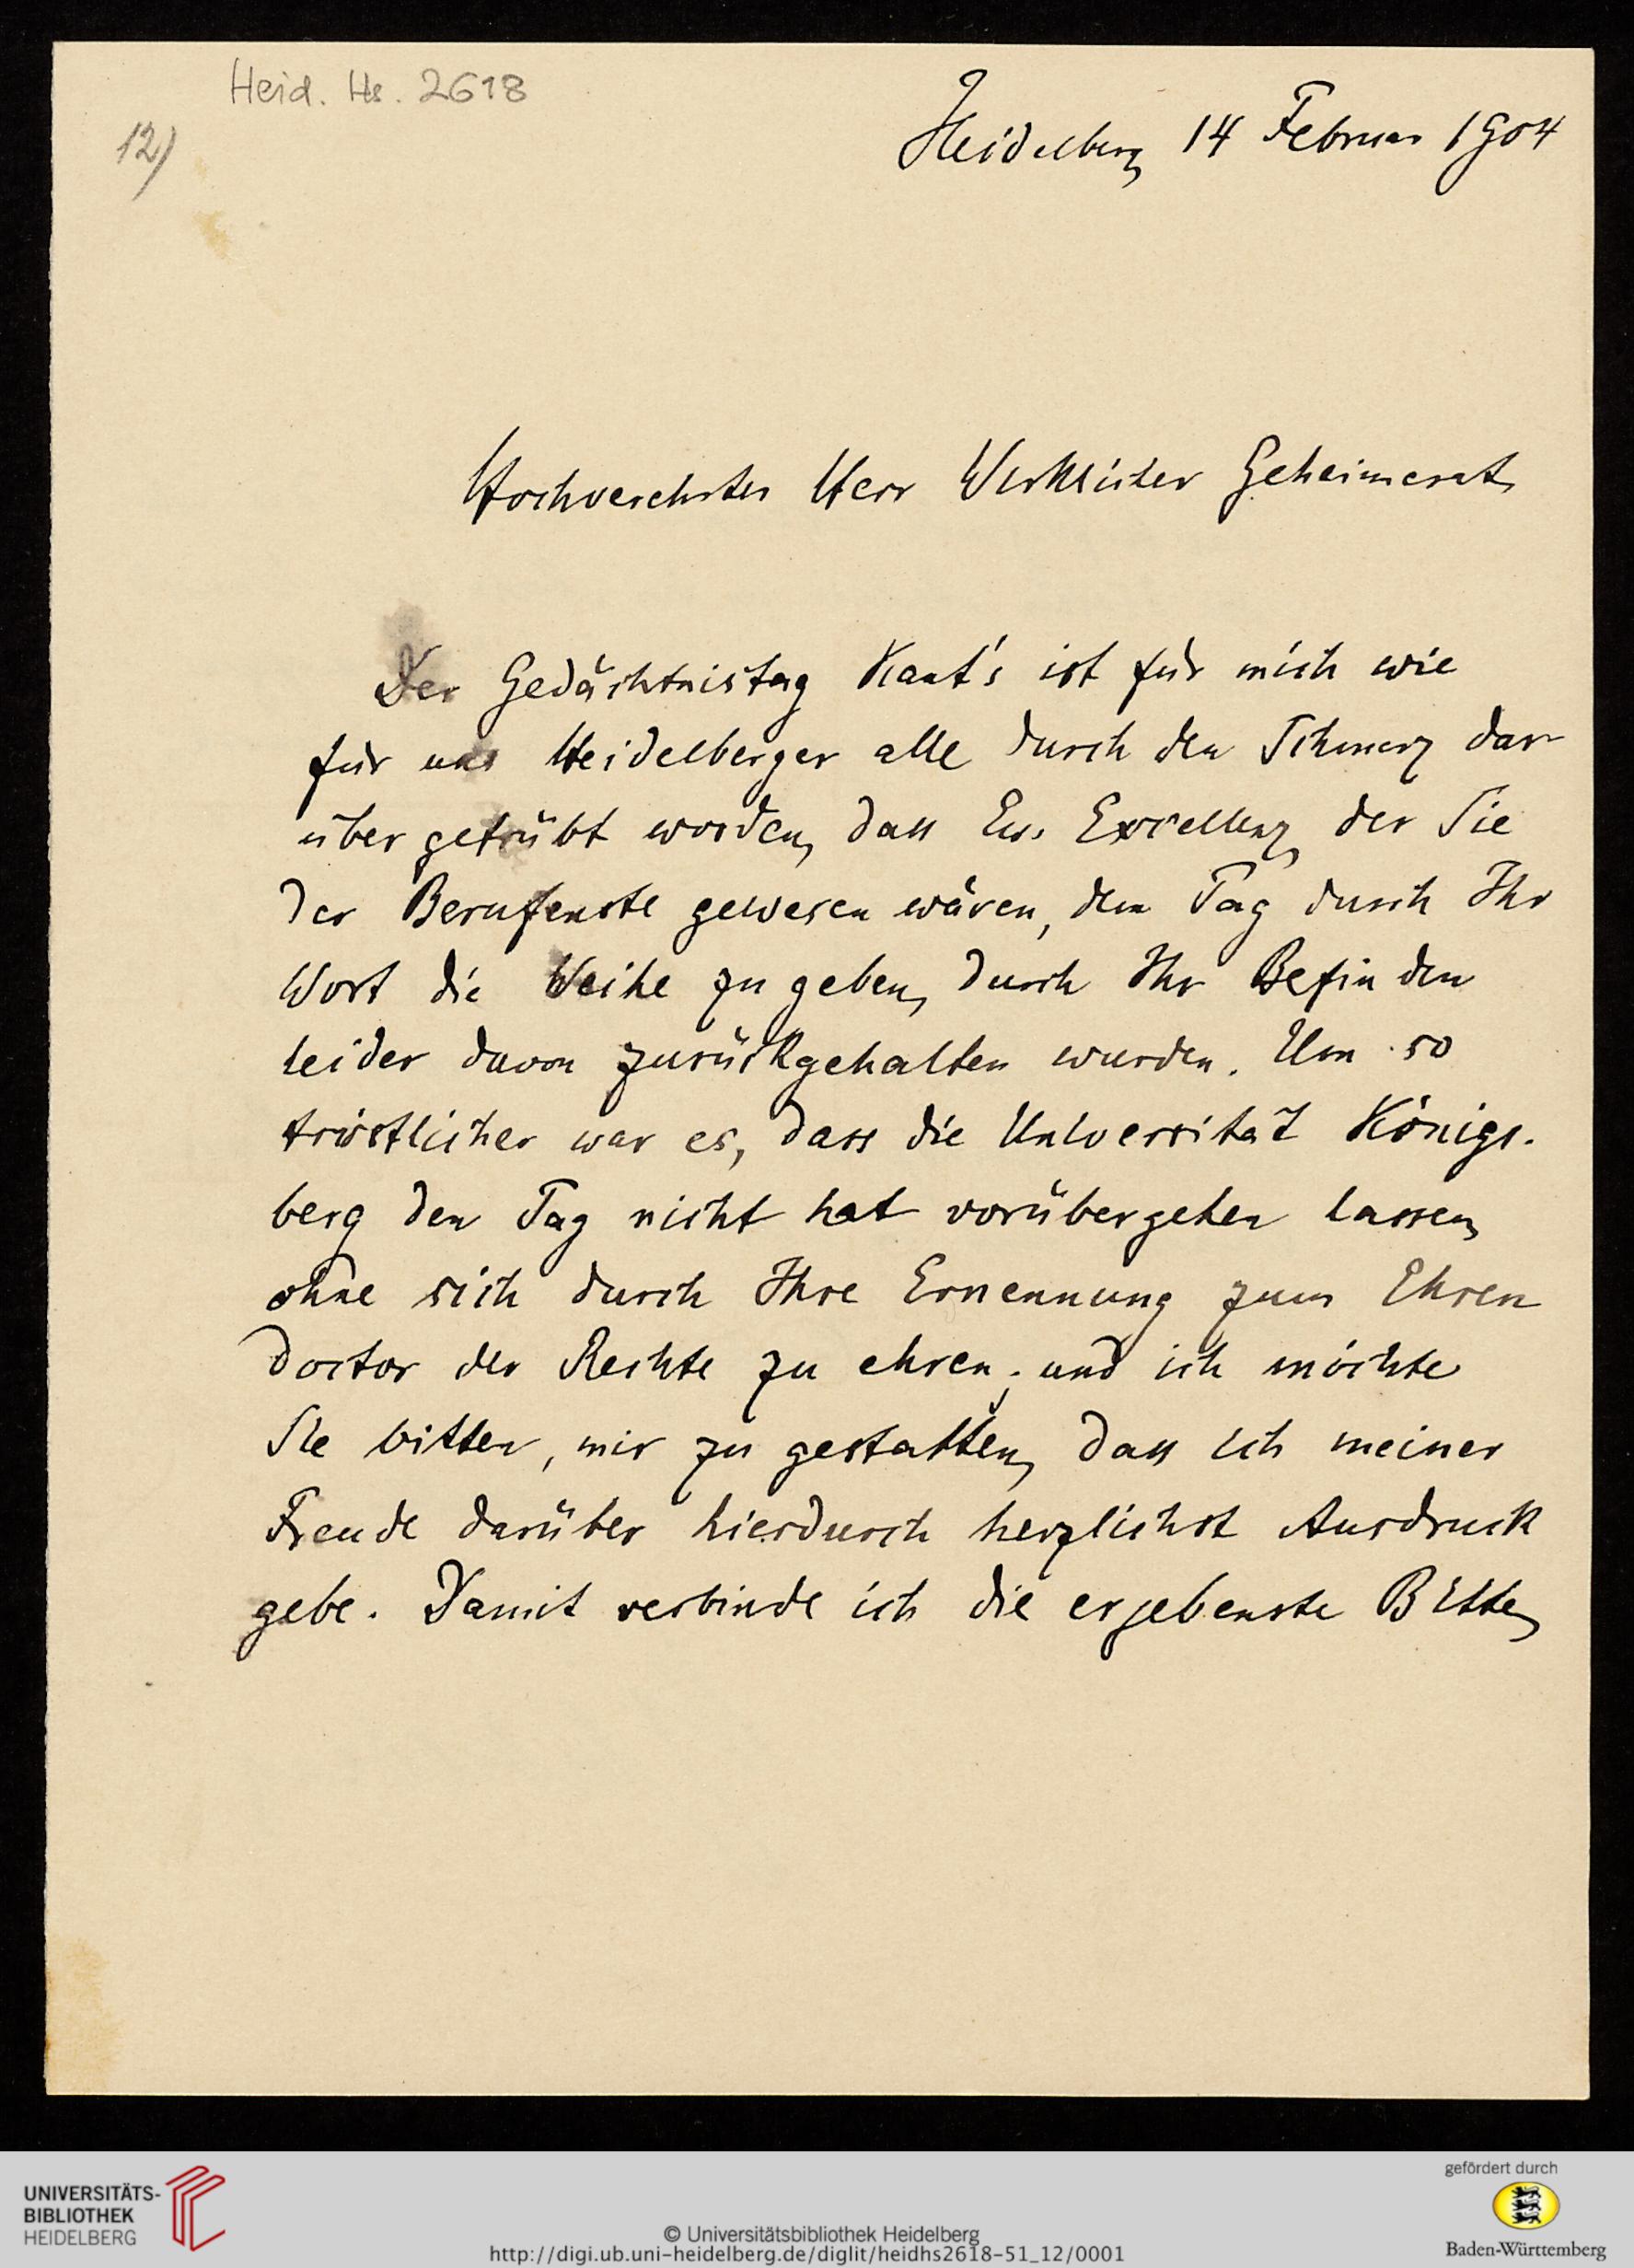 Heid. Hs. 2618
12)
Heidelberg 14 Februar 1904
Hochverehrter Herr Wirklicher Geheimerat,
Der Gedächtnistag Kant's ist für mich wie
für uns Heidelberger alle durch den Schmerz dar-
über getrübt worden, dass Ew. Excellenz, der Sie
der Berufenste gewesen wären, dem Tag durch Ihr
Wort die Weihe zu geben, durch Ihr Befinden
leider davon zurückgehalten wurden. Um so
tröstlicher war es, dass die Universität Königs-
berg den Tag nicht hat vorübergehen lassen,
ohne sich durch Ihre Ernennung zum Ehren
doctor der Rechte zu ehren; und ich möchte
Sie bitten, mir zu gestatten, dass ich meiner
Freude darüber hierdurch herzlichst Ausdruck
gebe. Damit verbinde ich die ergebenste Bitte,
UNIVERSITÄTS-
BIBLIOTHEK
HEIDELBERG
© Universitätsbibliothek Heidelberg
http://digi.ub.uni-heidelberg.de/diglit/heidhs2618-51_12/0001
gefördert durch
Baden-Württemberg